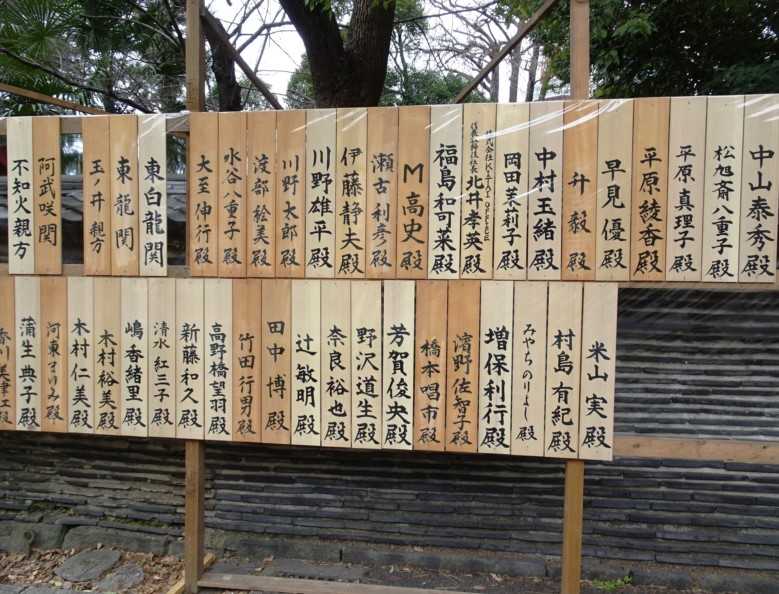 中山泰秀殿
松旭斎八重子殿
平原真理子殿
平原綾香殿
早見優殿
升毅殿
中村玉緒殿
岡田茉莉子殿
北井孝英殿
福島和可菜殿
M高史殿
瀬古利彦殿
伊藤静夫殿
川野雄平殿
川野太郎殿
渡部絵美殿
水谷八重子殿
大至伸行殿
東白龍関
東龍関
玉ノ井親方
阿武咲関
不知火親方
米山実殿
村島有紀殿
みやちのりよし殿
増保利行殿
濱野佐智子殿
橋本唱市殿
芳賀俊央殿
野沢道生殿
奈良裕也殿
辻敏明殿
田中博殿
竹田行男殿
高野橋望羽殿
新藤和久殿
清水紅三子殿
嶋香緒里殿
木村裕美殿
木村仁美殿
河東けいみ殿
蒲生典子殿
香川美津江殿